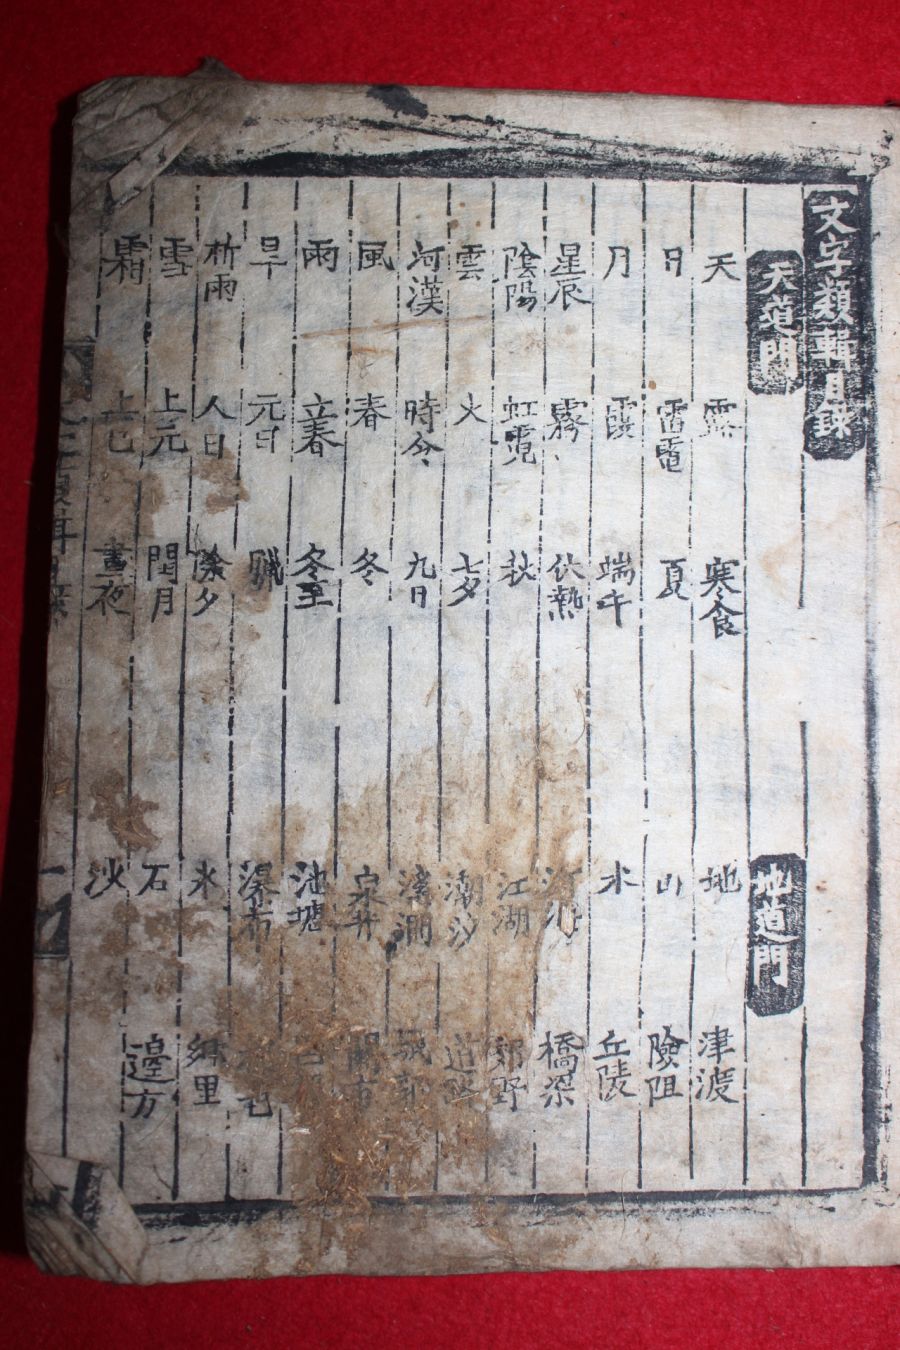 文字類輯目錄
天道門 地道門
天 露 寒食 地 津渡
日 雷電 夏 山 險阻
月 霞 端午 水 丘陵
星辰 霧 伏熱 河海 橋梁
陰陽 虹霓 秋 江湖 郊野
雲 火 七夕 潮汐 道路
河漢 時令 九日 溪澗
風 春 冬 泉井 關市
雨 立春 冬至 池塘
旱 元日 臘 瀑布
祈雨 人日 除夕 氷 鄕里
雪 上元 閏月 石 邊方
霜 上巳 晝夜 沙